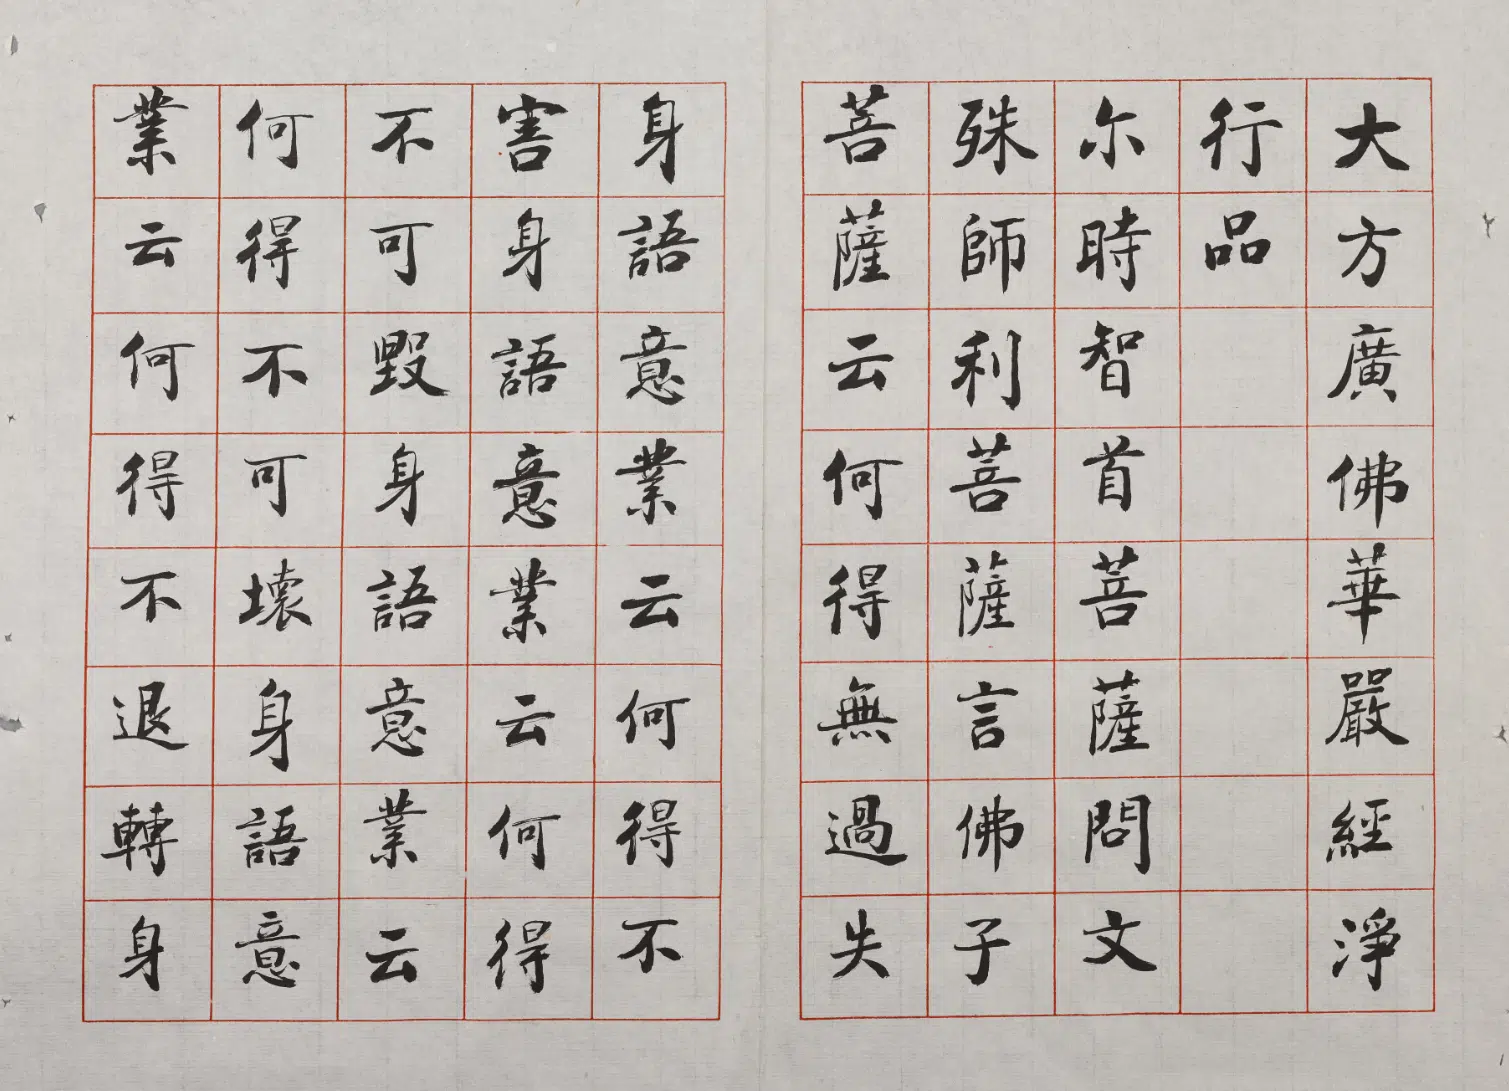 大方廣佛華嚴經淨
行品
尔時智首菩薩問文
殊師利菩薩言佛子
菩薩云何得無過失
身語意業云何得不
害身語意業云何得
不可毀身語意業云
何得不可壞身語意
業云何得不退轉身